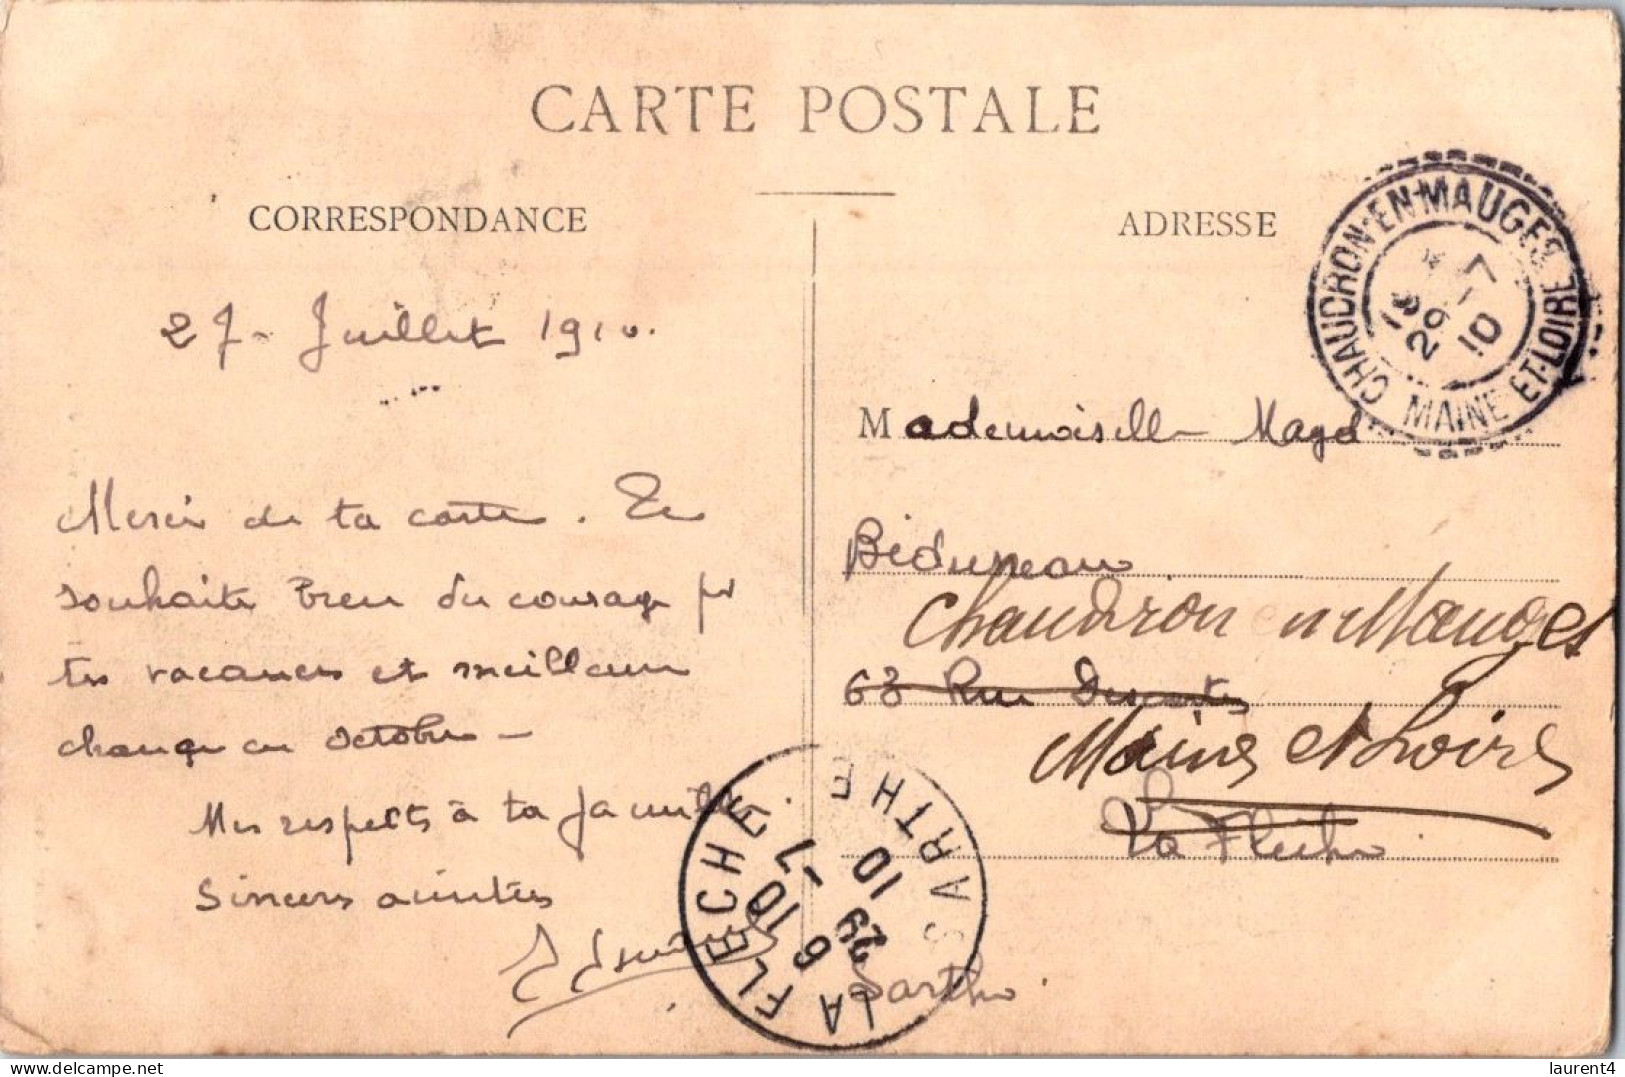 CARTE POSTALE
CORRESPONDANCE
27 - Juillet 1910.
Merci de ta carte. Te
souhaite bien du courage pr
tes vacances et meilleure
chance en Octobre -
Mes respects à ta famille
Sincères amitiés
ADRESSE
Mademoiselle Magd
Béduneau
Chaudron en Mauges
63 Rue Descartes
Maine et Loire
La Flèche
Sarthe.
CHAUDRON-EN-MAUGES
MAINE-ET-LOIRE
29 -7
10
LA FLECHE
SARTHE
6 29
10 10
-7
delcampe.net
laurent4